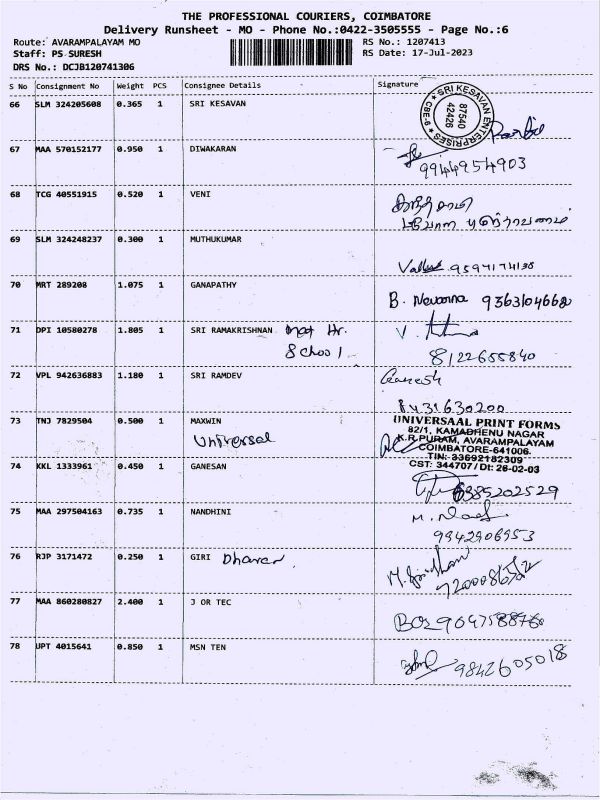 THE PROFESSIONAL COURIERS, COIMBATORE
Delivery Runsheet - MO - Phone No.:0422-3505555 - Page No.:6
Route: AVARAMPALAYAM MO
RS No.: 1207413
Staff: PS SURESH
RS Date: 17-Jul-2023
DRS No.: DCJB120741306
S No Consignment No Weight PCS Consignee Details Signature
66 SLM 324205608 0.365 1 SRI KESAVAN
★ SRI KESAVAN ENTERPRISES ★ CBE-6
87540
42426
67 MAA 570152177 0.950 1 DIWAKARAN
9944954903
68 TCG 40551915 0.520 1 VENI
69 SLM 324248237 0.300 1 MUTHUKUMAR
70 MRT 289208 1.075 1 GANAPATHY
B. 9363104668
71 DPI 10580278 1.805 1 SRI RAMAKRISHNAN Mat Hr.
School
8122655840
72 VPL 942636883 1.180 1 SRI RAMDEV
Ganesh
73 TNJ 7829504 0.500 1 MAXWIN
Universal
UNIVERSAAL PRINT FORMS
82/1, KAMADHENU NAGAR
K.R.PURAM, AVARAMPALAYAM
COIMBATORE-641006.
TIN: 33692182309
CST: 344707 / Dt: 26-02-03
74 KKL 1333961 0.450 1 GANESAN
6385202529
75 MAA 297504163 0.735 1 NANDHINI
9942906953
76 RJP 3171472 0.250 1 GIRI Dharan
77 MAA 860280827 2.400 1 J OR TEC
78 UPT 4015641 0.850 1 MSN TEN
9842605018